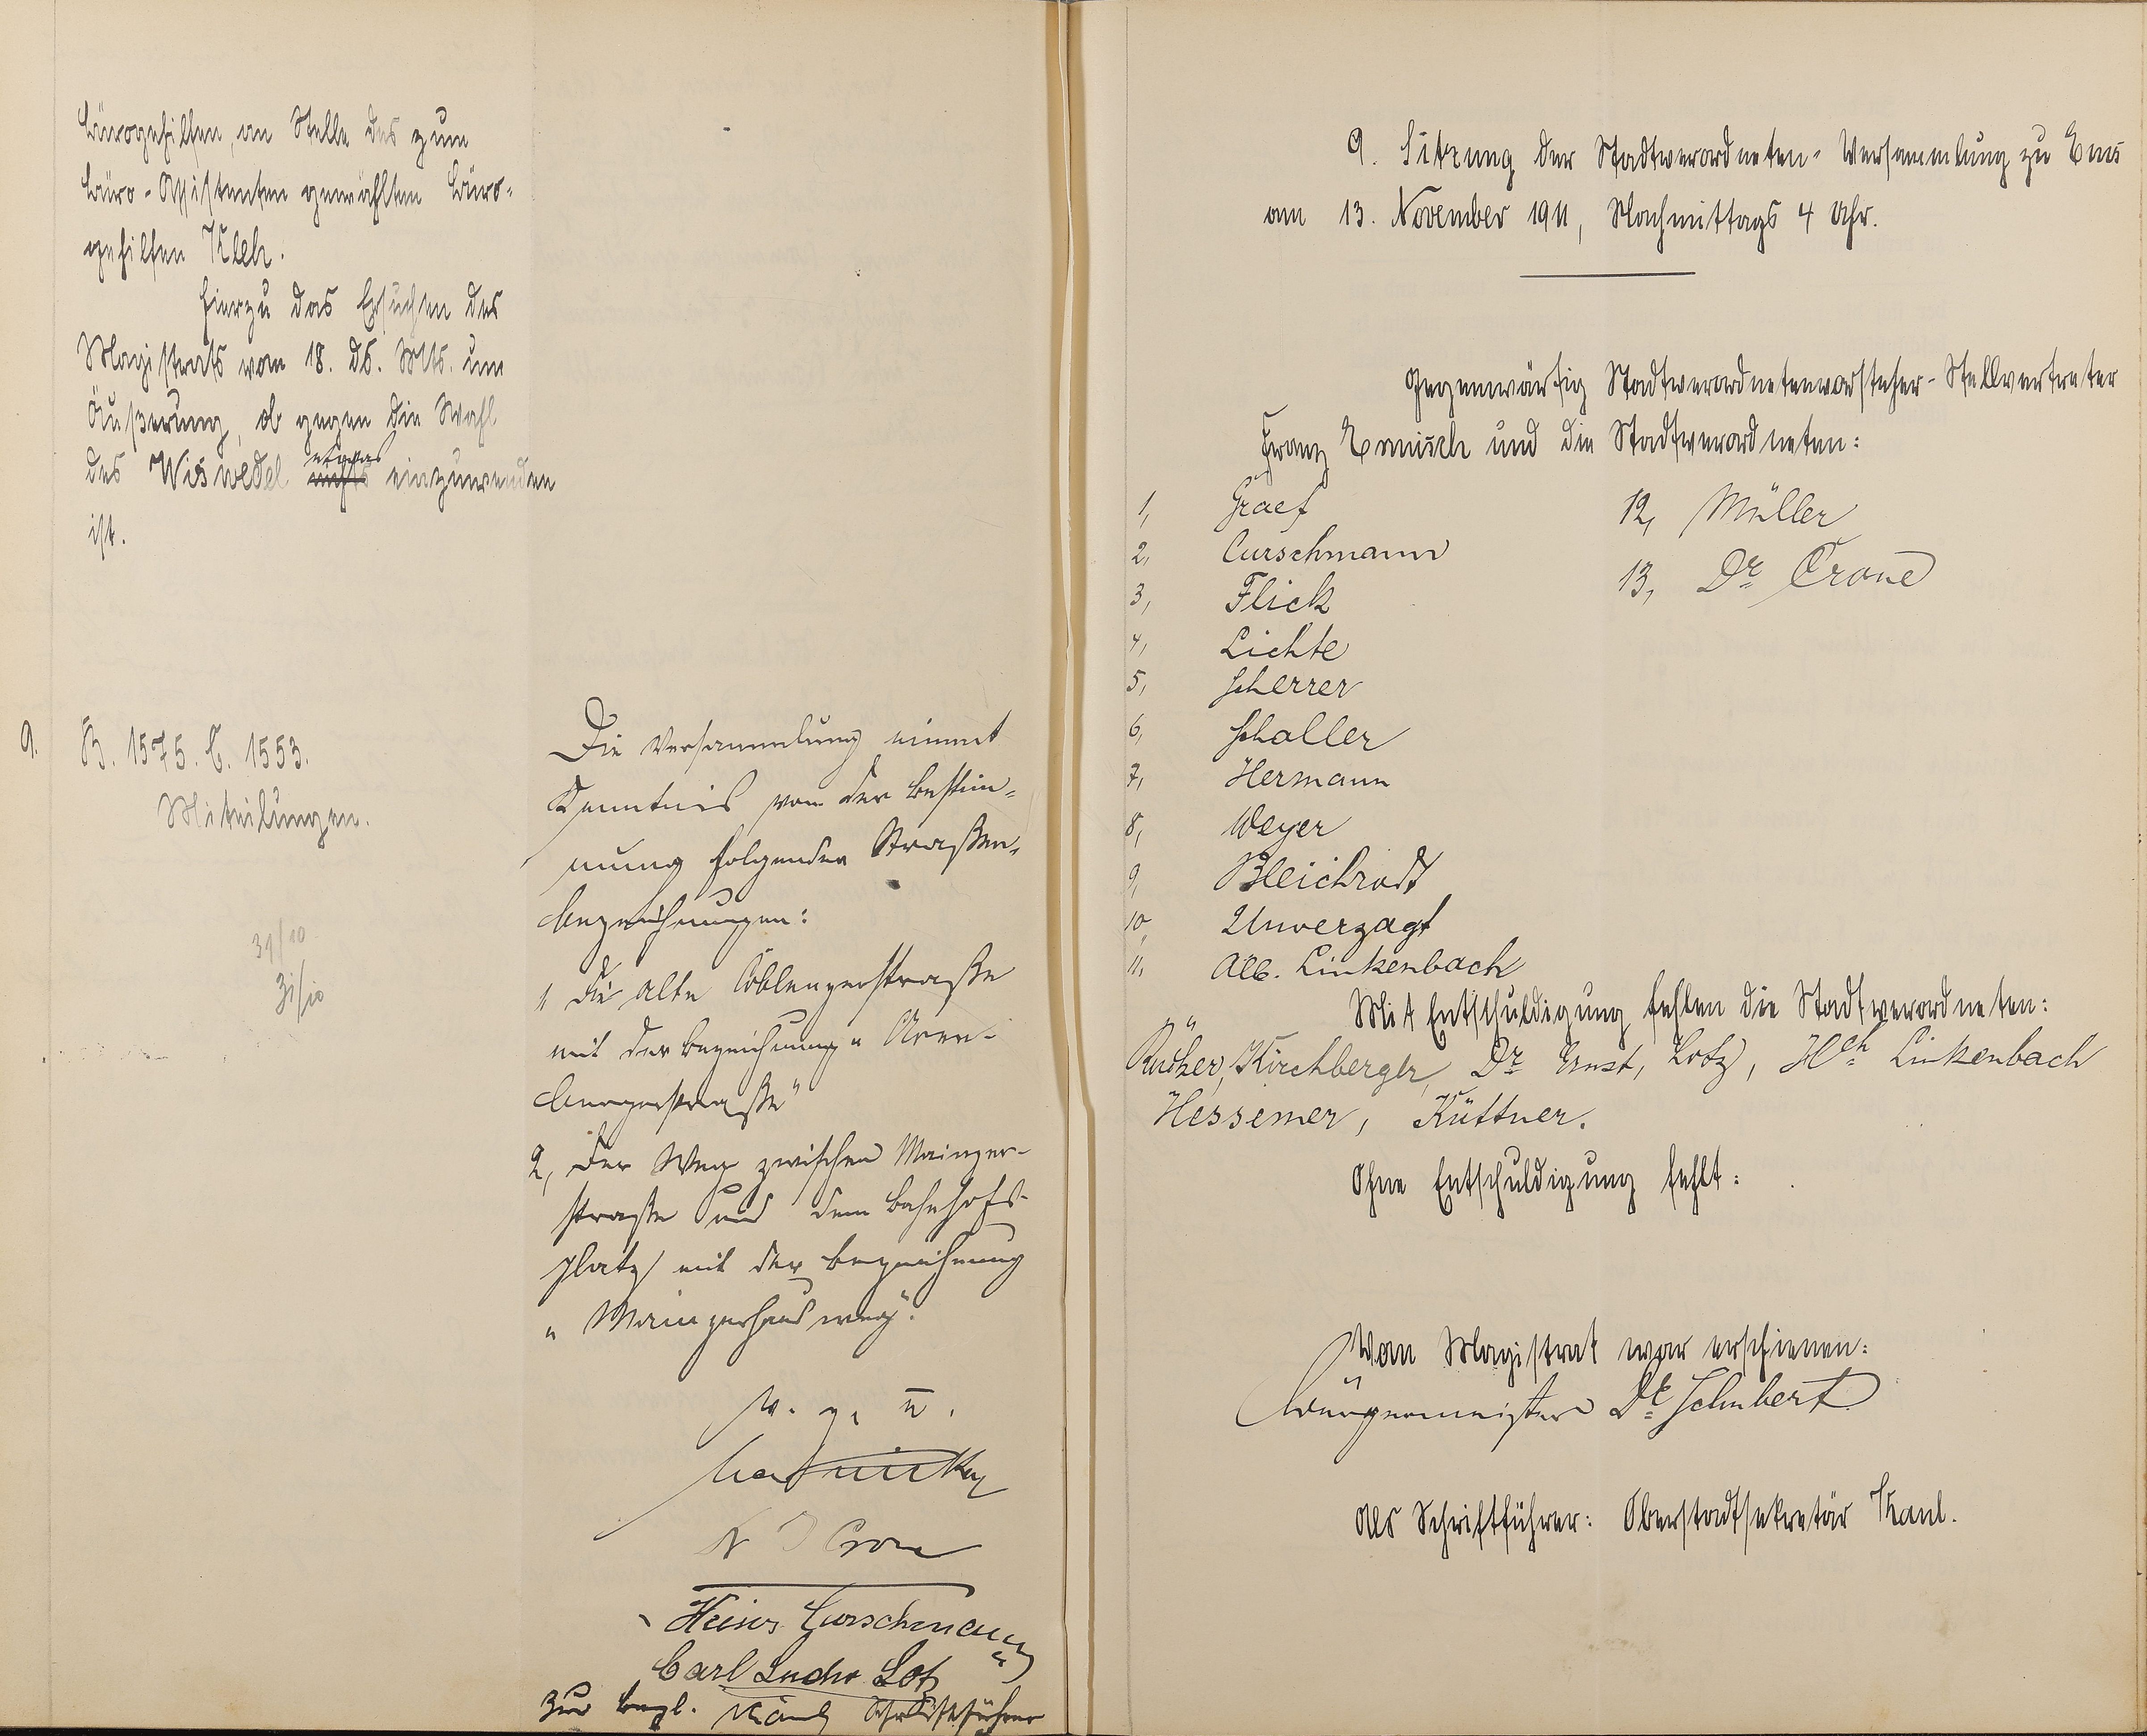 Bürogehilfen, an Stelle des zum
Büro-Assistenten gewählten Büro-
gehilfen Kleh.
Hierzu das Ersuchen des
Magistrats vom 18. ds. Mts. um
Äußerung, ob gegen die Wahl
des Wiswedel etwas einzuwenden
ist.
9. B. 1575. C. 1553.
Mitteilungen.
31/10
31/10
Die Versammlung nimmt
Kenntnis von der Bestim-
mung folgender Straßen-
bezeichnungen:
1, die alte Coblenzerstraße
mit der Bezeichnung "Aren-
bergerstraße"
2, Der Weg zwischen Mainzer-
straße und dem Bahnhofs-
platz mit der Bezeichnung
"Mainzerhausweg".
v. g. u.
Dr Crone
Heinr. Curschmann
Carl Ludw. Lotz
Zur Begl. Kaul Schriftführer
9. Sitzung der Stadtverordneten-Versammlung zu Ems
am 13. November 1911, Nachmittags 4 Uhr.
Gegenwärtig Stadtverordnetenvorsteher-Stellvertreter
Franz Ermisch und die Stadtverordneten:
1, Graef
2, Curschmann
3, Flick
4, Lichte
5, Scherrer
6, Schaller
7, Hermann
8, Weyer
9, Bleichrodt
10, Unverzagt
11, Alb. Linkenbach
12, Müller
13, Dr. Crone
Mit Entschuldigung fehlen die Stadtverordneten:
Rücker, Kirchberger, Dr. Ernst, Lotz, Hch. Linkenbach
Hessemer, Küttner.
Ohne Entschuldigung fehlt:
Vom Magistrat war erschienen:
Bürgermeister Dr. Schubert
Als Schriftführer: Oberstadtsekretär Kaul.